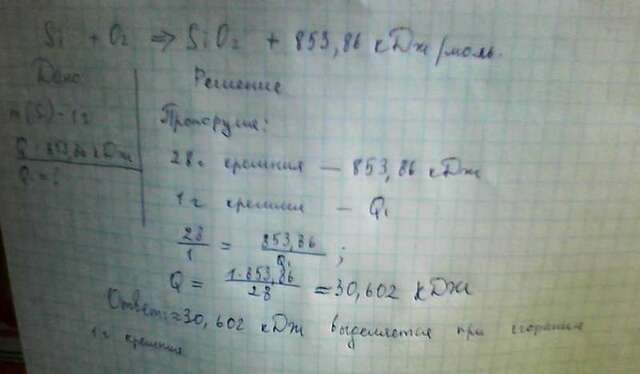 Si + O2 => SiO2 + 853,86 кДж/моль.
Дано
Решение
m(Si)-1г
Пропорция:
Q-853,86 кДж
28г кремния — 853,86 кДж
Q1=?
1г кремния — Q1
28/1 = 853,86/Q1 ;
Q = 1·853,86/28 ≈ 30,602 кДж
Ответ:≈30,602 кДж выделяется при сгорании
1г кремния